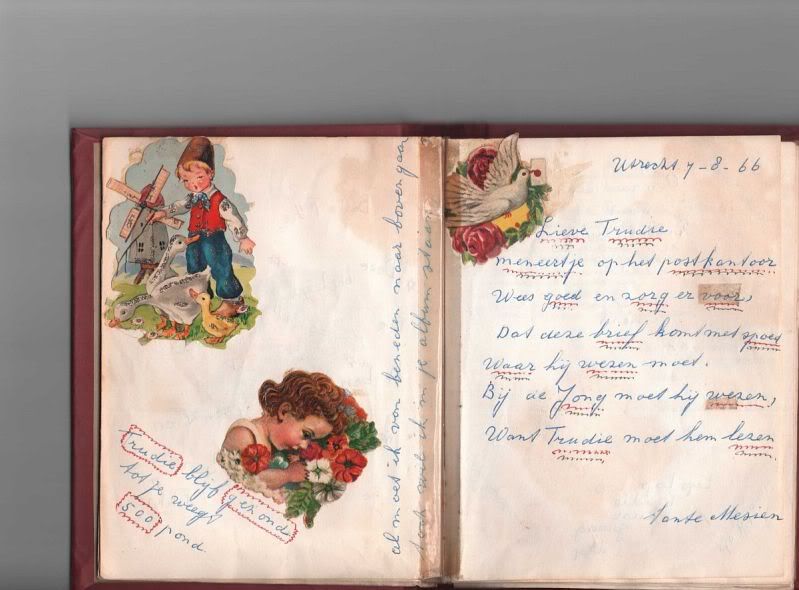 trudie blijf gezond
tot je weegt
500 pond.
al moet ik van beneden naar boven gaan
toch wil ik in je album staan
Utrecht 7-8-66
Lieve Trudie
meneertje op het postkantoor
Wees goed en zorg er voor,
Dat deze brief komt met spoed
Waar hij wezen moet.
Bij de Jong moet hij wezen,
Want Trudie moet hem lezen
Tante Mesien